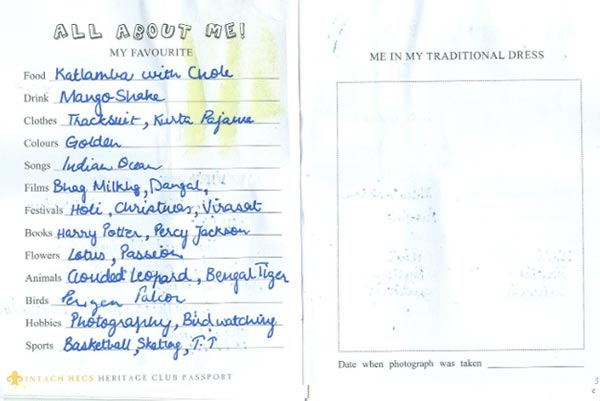 ALL ABOUT ME!
MY FAVOURITE
Food Katlamba with Chole
Drink Mango Shake
Clothes Tracksuit, Kurta Pajama
Colours Golden
Songs Indian Ocean
Films Bhag Milkhg, Dangal,
Festivals Holi, Christmas, Virasat
Books Harry Potter, Percy Jackson
Flowers Lotus, Passion
Animals Clouded Leopard, Bengal Tiger
Birds Perigen Falcon
Hobbies Photography, Birdwatching
Sports Basketball, Skating, T.T
INTACH HECS HERITAGE CLUB PASSPORT
ME IN MY TRADITIONAL DRESS
Date when photograph was taken
5